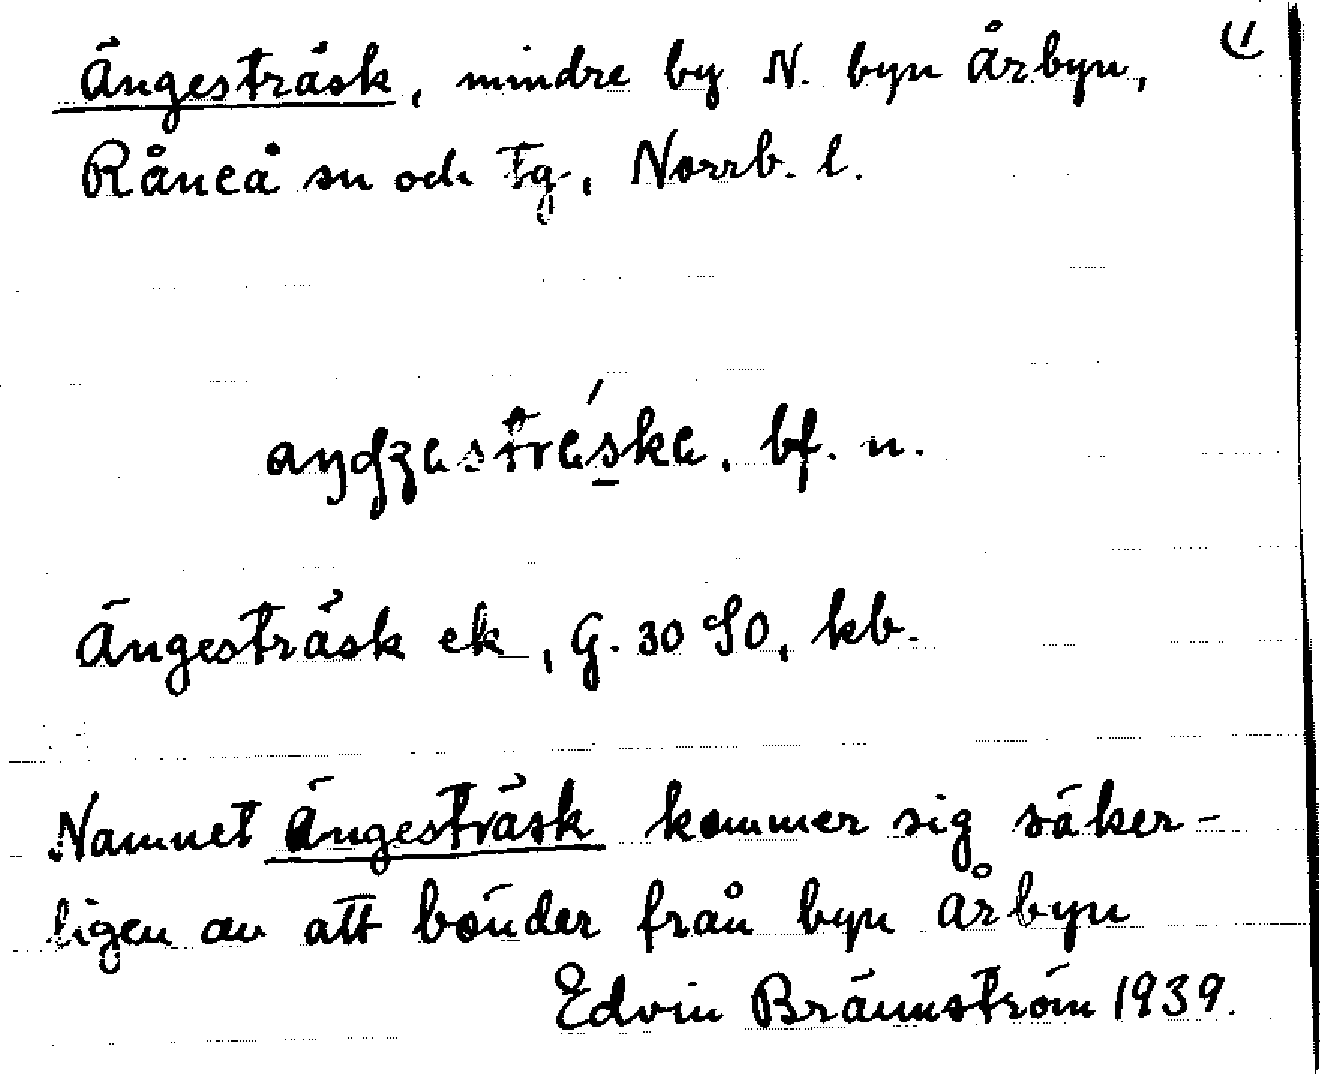 Ängesträsk, mindre by N. byn Årbyn, (1
Råneå sn och tg, Norrb. l.
bf. n.
Ängesträsk ek, G. 30 SO, kb.
Namnet Ängesträsk kommer sig säker-
ligen av att bönder från byn Årbyn
Edvin Brännström 1939.